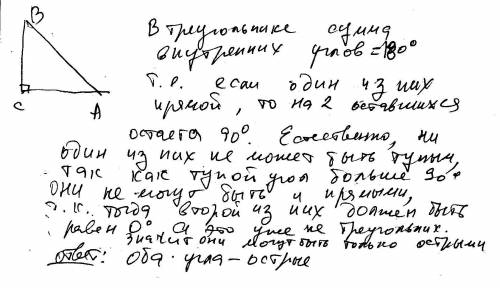 B
C
A
В треугольнике сумма
внутренних углов = 180°
Т.е. если один из них
прямой, то на 2 оставшихся
остается 90°. Естественно, ни
один из них не может быть тупым,
так как тупой угол больше 90°
они не могут быть и прямыми,
т.к. тогда второй из них должен быть
равен 0° а это уже не треугольник.
значит они могут быть только острыми
Ответ: Оба угла - острые